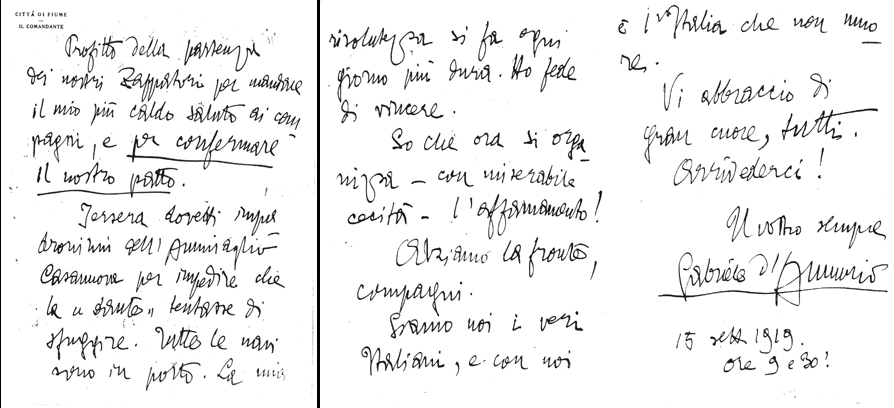 CITTÀ DI FIUME
IL COMANDANTE
Profitto della partenza
dei nostri Zappatori per mandare
il mio più caldo saluto ai com
pagni, e per confermare
il nostro patto.
Iersera dovetti impa
dronirmi dell'Ammiraglio
Casanuova per impedire che
la "Dante" tentasse di
sfuggire. Tutte le navi
sono in porto. La mia
risolutezza si fa ogni
giorno più dura. Ho fede
di vincere.
So che ora si orga
nizza – con miserabile
cecità – l'affamamento!
Alziamo la fronte,
compagni.
Siamo noi i veri
Italiani, e con noi
è l'Italia che non muo
re.
Vi abbraccio di
gran cuore, tutti.
Arrivederci!
Il vostro sempre
Gabriele d'Annunzio
15 sett 1919.
ore 9 e 30!